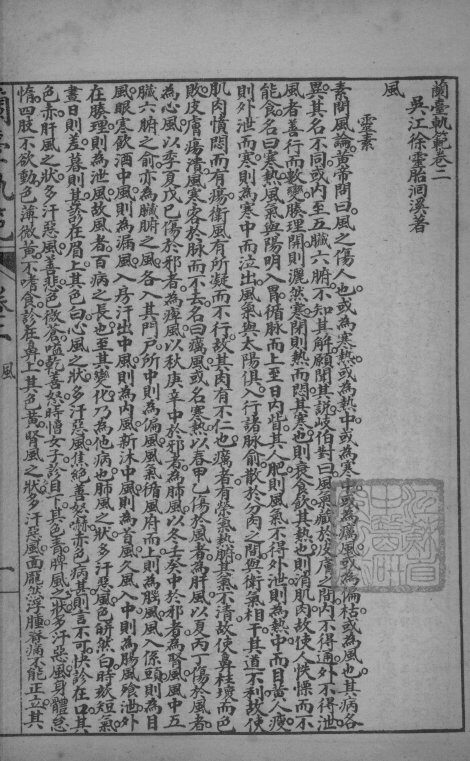 蘭臺軌範卷二
吳江徐靈胎洄溪著
風
靈素
素問風論黃帝問曰風之傷人也或為寒熱或為熱中或為寒中或為癘風或為偏枯或為風也其病各
異其名不同或內至五臟六腑不知其解願聞其說岐伯對曰風氣藏於皮膚之間內不得通外不得泄
風者善行而數變腠理開則灑然寒閉則熱而悶其寒也則衰食飲其熱也則消肌肉故使人怢慄而不
能食名曰寒熱風氣與陽明入胃循脈而上至目內眥其人肥則風氣不得外泄則為熱中而目黃人瘦
則外泄而寒則為寒中而泣出風氣與太陽俱入行諸脈俞散於分肉之間與衛氣相干其道不利故使
肌肉憤䐜而有瘍衛風有所凝而不行故其肉有不仁也癘者有榮氣熱胕其氣不清故使鼻柱壞而色
敗皮膚瘍潰風寒客於脈而不去名曰癘風或名寒熱以春甲乙傷於風者為肝風以夏丙丁傷於風者
為心風以季夏戊己傷於邪者為脾風以秋庚辛中於邪者為肺風以冬壬癸中於邪者為腎風風中五
臟六腑之俞亦為臟腑之風各入其門戶所中則為偏風風氣循風府而上則為腦風風入係頭則為目
風眼寒飲酒中風則為漏風入房汗出中風則為內風新沐中風則為首風久風入中則為腸風飱泄外
在腠理則為泄風故風者百病之長也至其變化乃為他病也肺風之狀多汗惡風色皏然白時欬短氣
晝日則差暮則甚診在眉上其色白心風之狀多汗惡風焦絕善怒嚇赤色病甚則言不可快診在口其
色赤肝風之狀多汗惡風善悲色微蒼嗌乾善怒時憎女子診目下其色青脾風之狀多汗惡風身體怠
惰四肢不欲動色薄微黃不嗜食診在鼻上其色黃腎風之狀多汗惡風面龐然浮腫脊痛不能正立其
蘭臺軌範
卷二
風
一